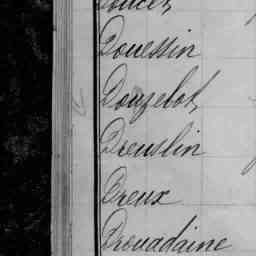 Douessin
Douzelot
Dreuslin
Dreux
Drouadaine